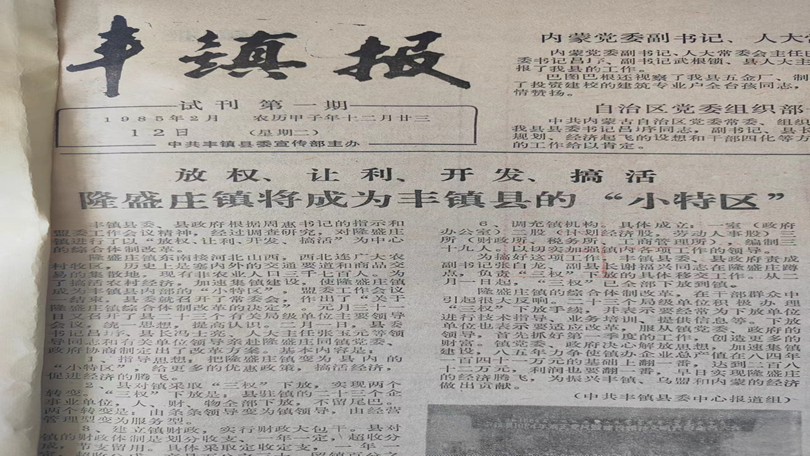 丰镇报
试刊 第一期
1985年2月 农历甲子年十二月廿三
12日 (星期二)
中共丰镇县委宣传部主办
内蒙党委副书记、人大常
内蒙党委副书记、人大常委会主任巴
委书记吕序、副书记武根锁、县人大主
报了我县的工作。
巴图巴根还视察了我县五金厂、制
了投资建校的建筑专业户全台孩同志,
情赞扬。
自治区党委组织部
中共内蒙古自治区党委常委、组织
我县县委书记吕序同志,副书记、县长
规划、经济起飞的设想和干部四化等方
的工作给以肯定。
放权、让利、开发、搞活
隆盛庄镇将成为丰镇县的“小特区”
丰镇县委、县政府根据周惠书记的指示和
盟委工作会议精神,经过调查研究,对隆盛庄
镇进行了以“放权、让利、开发、搞活”为中心
的综合体制改革。
隆盛庄镇东南接河北山西,西北连广大农
村牧区,历史上是塞内外的交通要道和商品交
易的集散地,现有非农业人口三千七百人。为
了搞活农村经济,加速集镇建设,使隆盛庄镇
成为丰镇县内部的“小特区”,盟委工作会议
一结束,县委就召开了常委会,作出了“关于
隆盛庄镇综合体制改革的决定”。元月二十一
日又召开了二十三个有关局级单位主要领导
会议,统一思想,提高认识。二月一日,县委
书记吕序、县长冯士亮、人大主任张玉元等领
导同志和有关单位领导亲赴隆盛庄同镇党委、
政府协商制定出了改革方案。基本内容是:
1、指导思想,把隆盛庄镇变为县内的
“小特区”,给更多的优惠政策,搞活经济,
促进经济的腾飞。
2、县对镇采取“三权”下放,实现两个
转变。“三权”下放是,县驻镇的二十三个企
事业单位,人、财、物全部下放,不留尾巴。
两个转变是:由条条领导变为镇领导,由经营
管理型变为服务型。
3、建立镇财政,实行财政大包干。县对
镇的财政体制是划分收支、一年一定,超收分
成,节支留用。具体采取定收定支,一年一
6、调充镇机构。具体成立:一室(政府
办公室)二股(计划经济股,劳动人事股)三
所(财政所、税务所、工商管理所),编制三
十九人,以切实加强镇内各项工作的领导。
为搞好这项工作,丰镇县委、县政府责成
副书记张白龙、副县长尉福兴同志在隆盛庄蹲
点,负责“三权”下放的具体移交工作。从二
月一日起,“三权”已全部下放到镇。
隆盛庄镇的综合体制改革,在干部群众中
引起很大反响。二十三个局级单位积极办理
“三权”下放手续,并表示要经常为下放单位
进行技术指导、业务培训、提供信息等。下放
单位也表示要适应改革,服从镇党委、政府的
领导,首先抓好第一季度的工作,创造更多的
财富。镇党委、政府决心解放思想,加速集镇
建设,八五年力争使镇办企业总产值在八四年
一百四十一万元的基础上翻一番,达到二百八
十二万元,利润也要翻一番,早日实现隆盛庄
的经济腾飞,为振兴丰镇、乌盟和内蒙的经济
做出贡献。
(中共丰镇县委中心报道组)